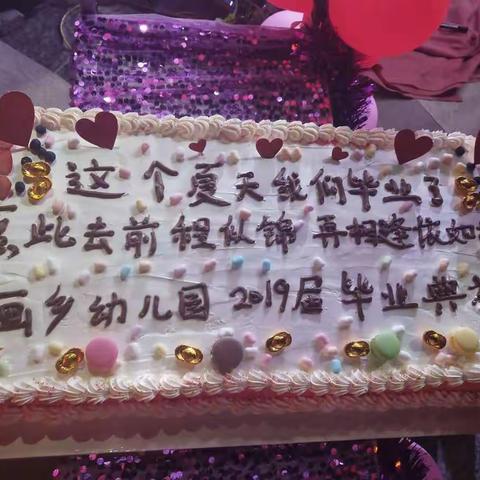 这个夏天我们毕业了
此去前程似锦 再相逢依如
画乡幼儿园 2019届毕业典